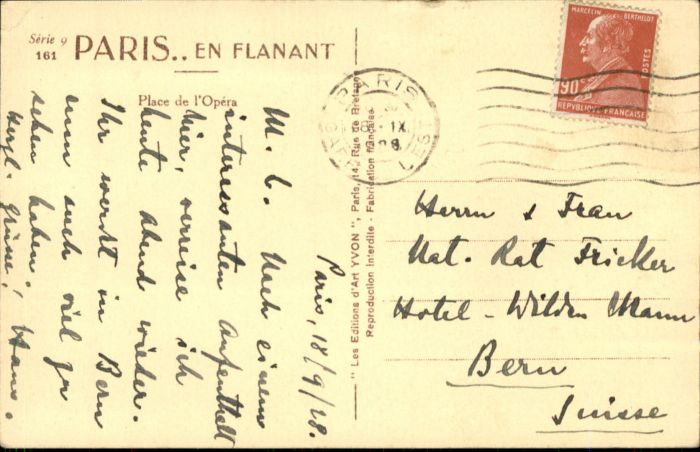 Série 9
161
PARIS.. EN FLANANT
Place de l'Opéra
Paris, 18/9/28.
M. L. Nach einem
interessanten Aufenthalt
hier, verreise ich
heute Abend wieder.
Ihr werdet in Bern
nun auch viel zu
sehen haben.
Herzl. Grüsse, Hans.
" Les Editions d'Art YVON ", Paris, 14, Rue de Bretagne
Reproduction Interdite - Fabrication française
PARIS
IX
28
MARCELIN BERTHELOT
90c
POSTES
REPUBLIQUE FRANÇAISE
Herrn & Frau
Nat. Rat Fricker
Hotel - Wilden Mann
Bern
Suisse